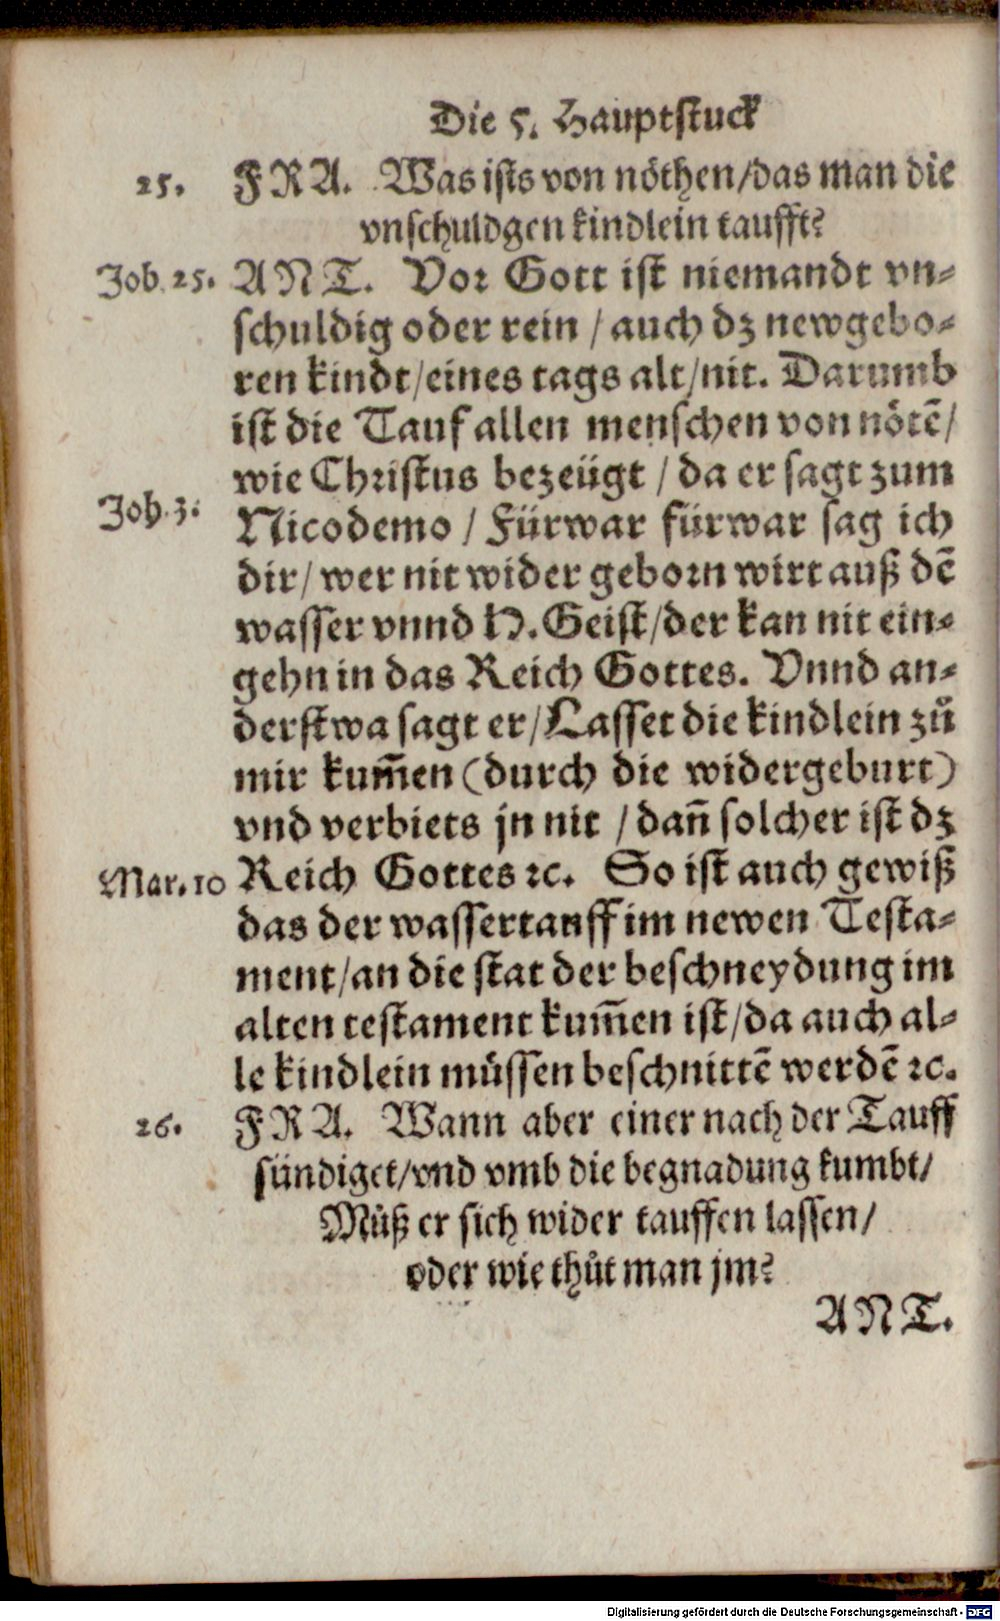 Die 5. Hauptstuck
25. FRA. Was ists von nöthen/das man die
vnschuldgen kindlein taufft?
Job. 25. ANT. Vor Gott ist niemandt vn-
schuldig oder rein / auch dz newgebo-
ren kindt/eines tags alt/nit. Darumb
ist die Tauf allen menschen von nötē/
wie Christus bezeügt / da er sagt zum
Joh. 3. Nicodemo / Fürwar fürwar sag ich
dir/ wer nit wider geborn wirt auß dē
wasser vnnd H. Geist/der kan nit ein-
gehn in das Reich Gottes. Vnnd an-
derstwa sagt er/Lasset die kindlein zů
mir kum̄en (durch die widergeburt)
vnd verbiets jn nit / dan̄ solcher ist dz
Mar. 10 Reich Gottes ꝛc. So ist auch gewiß
das der wassertauff im newen Testa-
ment/an die stat der beschneydung im
alten testament kum̄en ist/da auch al-
le kindlein müssen beschnittē werdē ꝛc.
26. FRA. Wann aber einer nach der Tauff
sündiget/vnd vmb die begnadung kumbt/
Můß er sich wider tauffen lassen/
oder wie thůt man jm?
ANT.
Digitalisierung gefördert durch die Deutsche Forschungsgemeinschaft - DFG